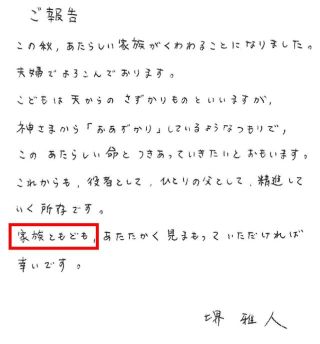 ご報告
この秋,あたらしい家族がくわわることになりました。
夫婦でよろこんでおります。
こどもは天からのさずかりものといいますが,
神さまから「おあずかり」しているようなつもりで,
このあたらしい命とつきあっていきたいとおもいます。
これからも,役者として,ひとりの父として,精進して
いく所存です。
家族ともども,あたたかく見まもっていただければ
幸いです。
堺雅人